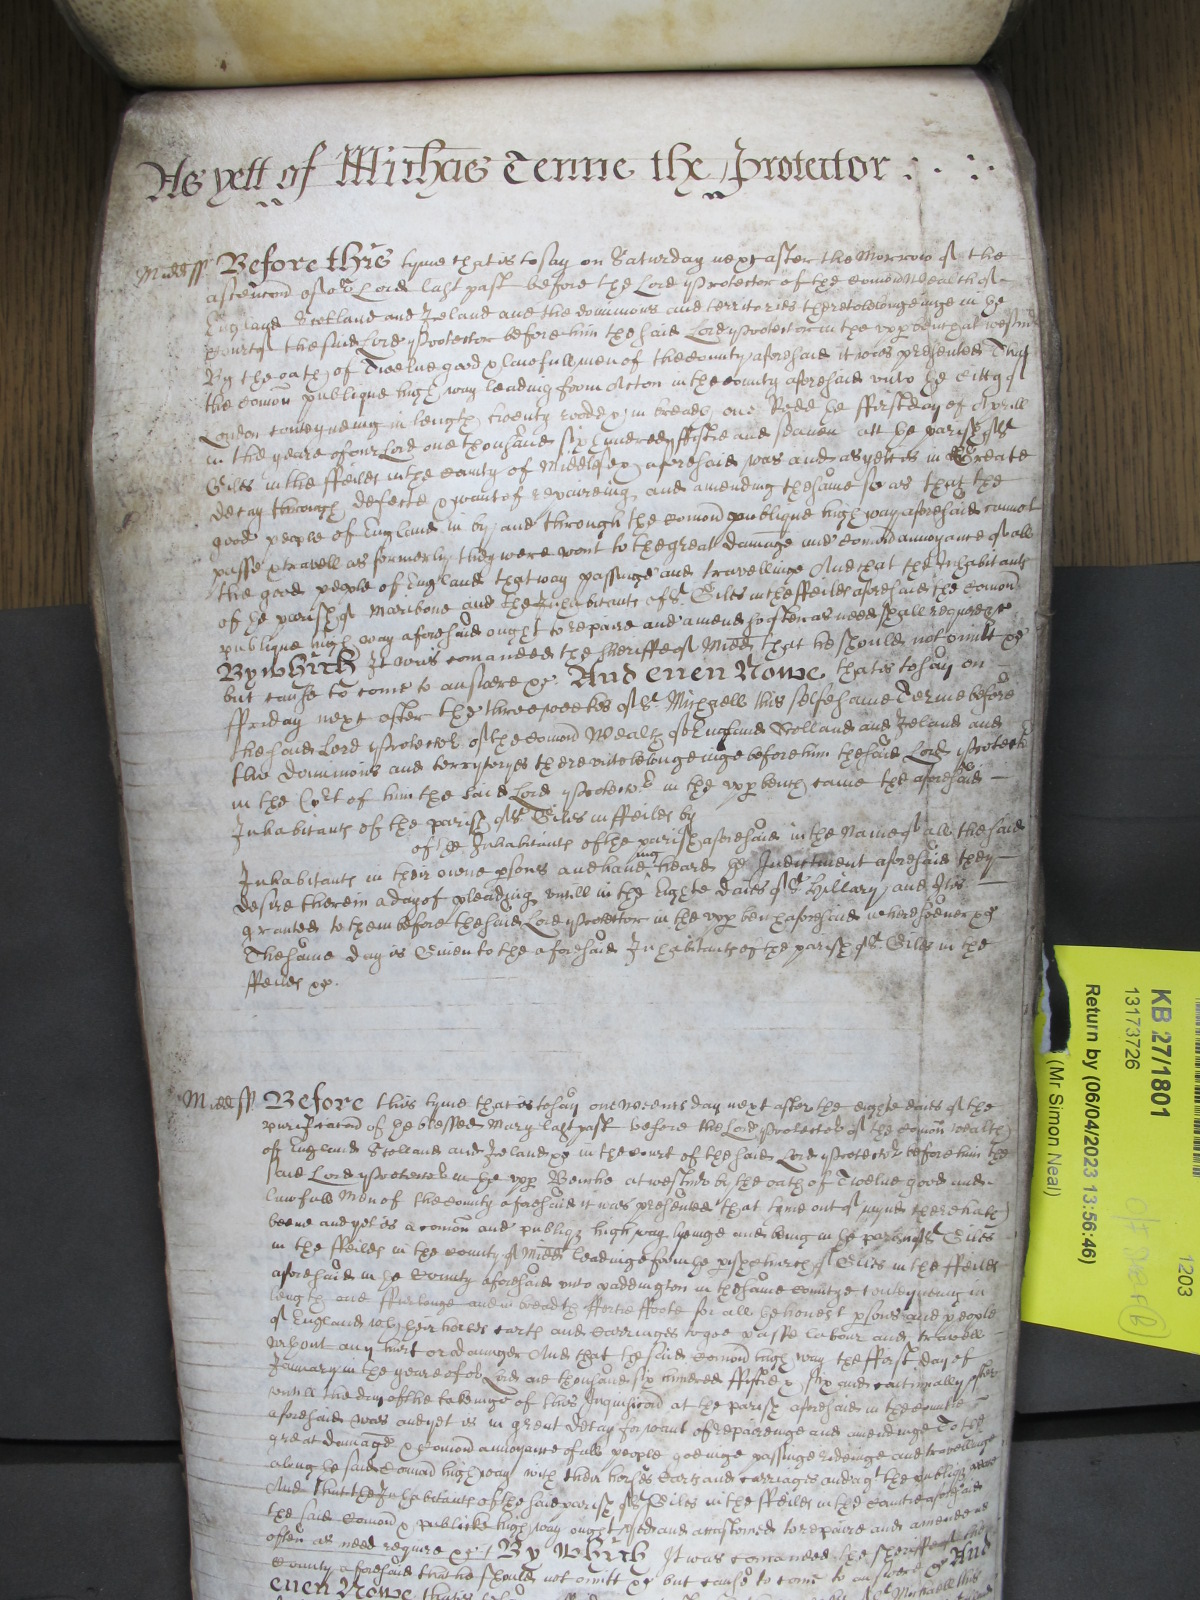 As yett of Michas Terme the Protector
Midd ss Before this tyme that is to say on Saturday next after the Morrow of the
ascencon of or Lord last past before the Lord Protector of the Comon Wealth of
England Scotland and Ireland and the dominions and territories thereto belongeinge in he
Court of the said Lord Protector before him the said Lord Protector in the upp bench at Westmr
By the oath of Twelve good & lawfull men of the County aforesaid it was presented That
the comon publique high way leading from Acton in the County aforesaid unto he Citty of
London conteyneing in length twenty roode & in breadth one Rode he ffirst day of Aprill
in the yeare of our Lord one thousand six hundred ffiftie and seaven att he parish of St
Giles in the ffeilds in the County of Middlesex aforesaid was and as yett is in Greate
decay through defecte & want of repaireing and amending the same so as that the
good people of England in by and through the comon publique high way aforesaid cannot
passe & travell as formerly they were wont to the great damage and comon annoyance of all
the good people of England that way passinge and travellinge And that the Inhabitants
of he parish of Maribone and the Inhabitants of St Giles in the ffeilds aforesaid the comon
publique high way aforesaid ought to repaire and amend so often as need shall require &c
By which It was comanded the Sheriffe of Midd that he should not omitt &c
but cause to come to answere &c And even Nowe that is to say on
ffriday next after the three weekes of St Michaell this selfe same Terme before
the said Lord Protector of the Comon Wealth of England Scotland and Ireland and
the dominions and terrytoryes thereunto belongeinge before him the said Lord Protector
in the Cort of him the said Lord Protector in the upp bench came the aforesaid
Inhabitants of the parish of St Giles in ffeilds by
of he Inhabitants of the parish aforesaid in the Name of all the said
Inhabitants in their owne psons and haveing heard he Indictment aforesaid they
desire therein a day of pleading untill in the Eight daies of St Hillary and It is
granted to them before the said Lord Protector in the upp bench aforesaid wheresoever &c
The same day is Given to the aforesaid Inhabitants of the parish of St Giles in the
ffeilds &c.
Midd ss Before this tyme that is to say on Wednesday next after the eight daies of the
purificacon of he blessed Mary last past before the Lord Protector of the Comon Wealth
of England Scotland and Ireland &c in the Court of the said Lord Protector before him the
said Lord Protector in he upp Benche at Westmr by the oath of Twelve good and
lawfull Men of the County aforesaid it was presented that tyme out of mynd there hath
beene and yet is a comon and publiq high way lyeinge and being in he parish of St Giles
in the ffeilds in the County of Midd leadinge from he pish church of St Giles in the ffeilds
aforesaid in he County aforesaid unto Paddington in the same County conteyneing in
length one ffurlonge and in breadth ffortie ffoote for all he honest psons and people
of England wth their horses carts and carriages to goe passe labour and travell
wthout any hurt or daunger And that the said comon high way the ffirst day of
January in the yeare of or Lord one thousand six hundred ffiftie & six and continually after
untill the day of the takeinge of this Inquisicon at the parish aforesaid in the Countie
aforesaid was and yet is in great decay for want of repaireinge and amendinge To the
great damage & comon annoyance of all people goeinge passinge rideinge and travellinge
along he said comon high way with their horses carts and carriages and agt the publiq peace
And that the Inhabitants of the said parish of St Giles in the ffeilds in the Countie aforesaid
the said comon & publicke high way ought used and accustomed to repaire and amend as
often as need require &c By Which It was comanded the Sheriffe of the
County aforesaid that he should not omitt &c but cause to come to answere &c And
even Nowe that is to say
KB 27/1801
13173726
Return by (06/04/2023 13:56:46)
(Mr Simon Neal)
1203